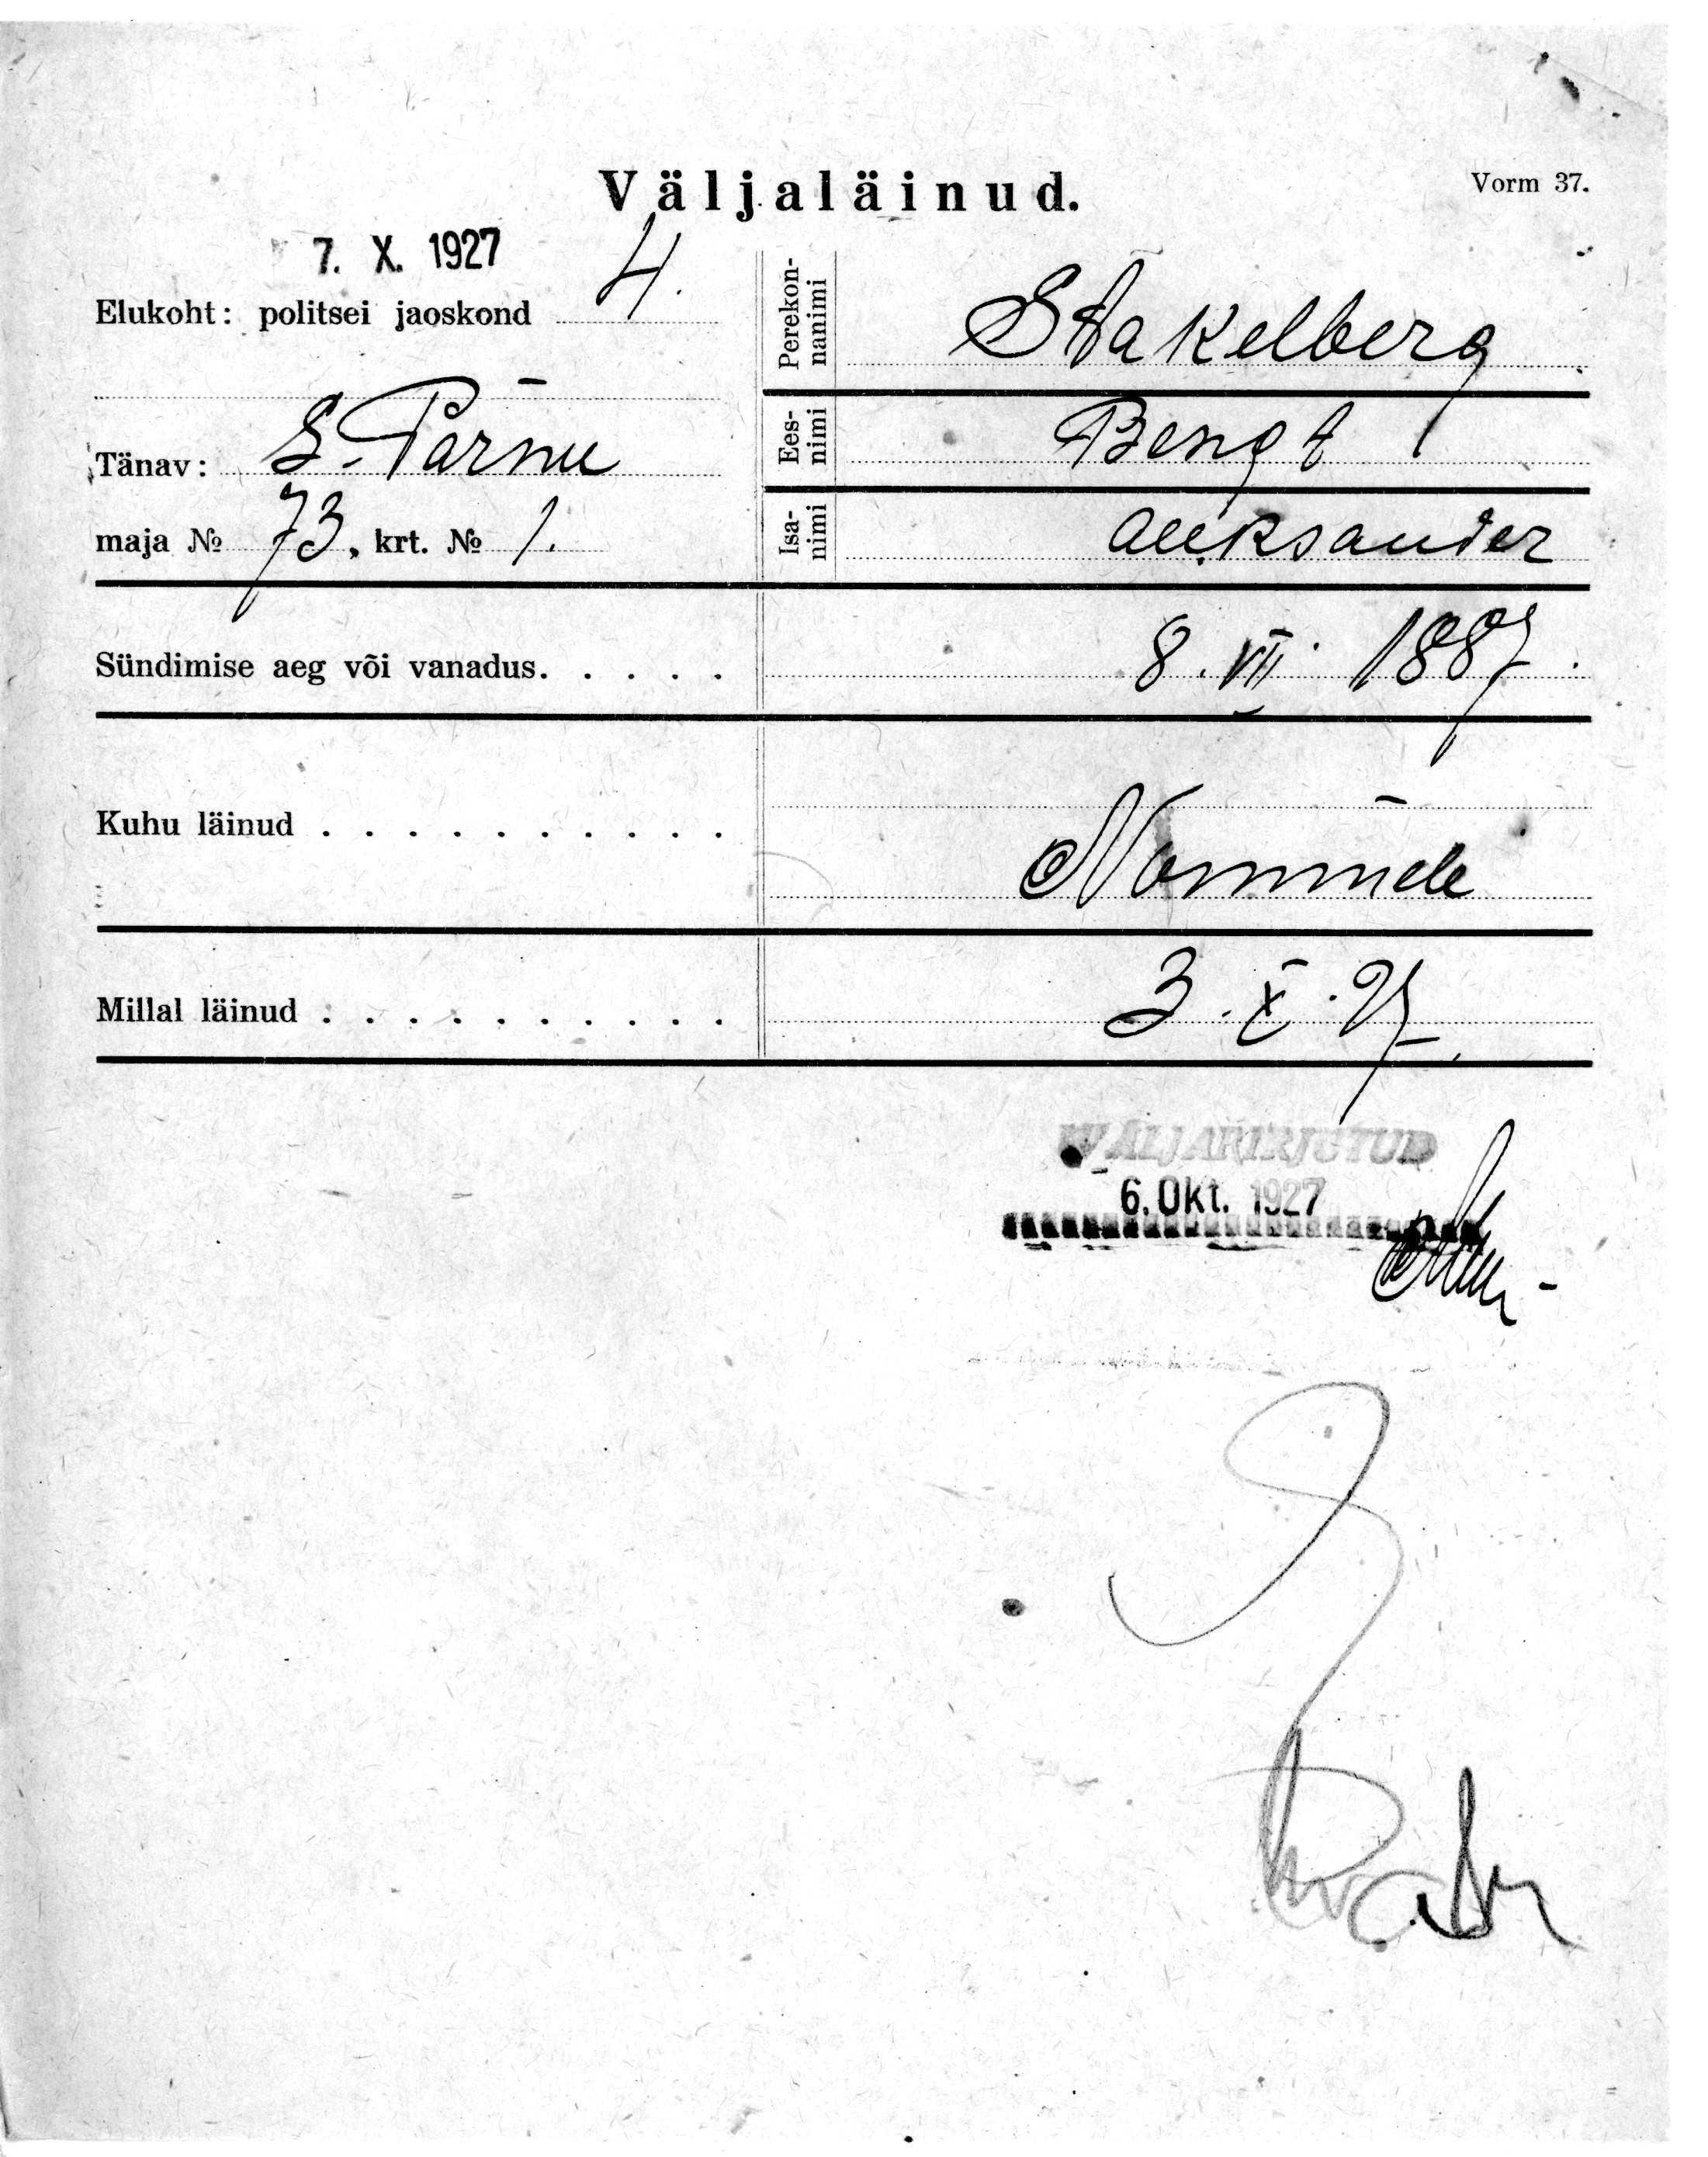 Väljaläinud.
Vorm 37.
7. X. 1927
Elukoht: politsei jaoskond 4.
Tänav: S. Pärnu
maja № 73, krt. № 1.
Perekonnanimi Stakelberg
Eesnimi Bengt
Isanimi Aleksander
Sündimise aeg või vanadus. . . . . 8. VII. 1887.
Kuhu läinud . . . . . . . . . . Nõmmele
Millal läinud . . . . . . . . . . 3. X. 27.
VÄLJAKIRJUTUD
6. Okt. 1927